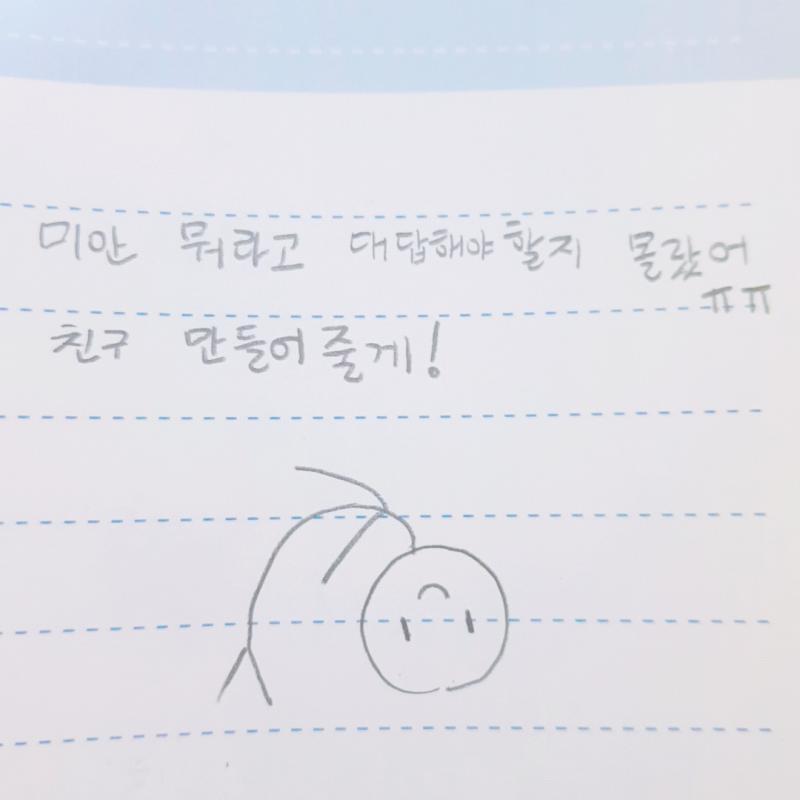 미안 뭐라고 대답해야할지 몰랐어
ㅠㅠ
친구 만들어줄게!